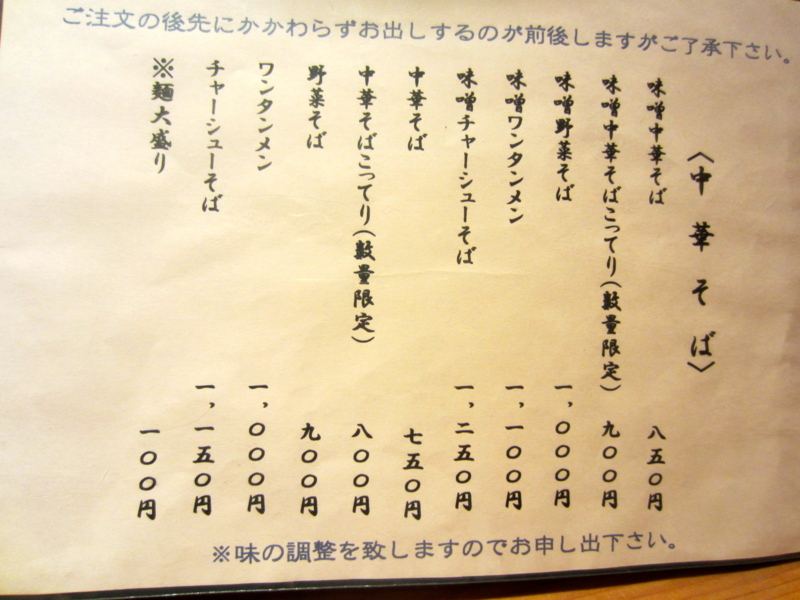 ご注文の後先にかかわらずお出しするのが前後しますがご了承下さい。
〈中華そば〉
味噌中華そば 八五〇円
味噌中華そばこってり(数量限定) 九〇〇円
味噌野菜そば 一,〇〇〇円
味噌ワンタンメン 一,一〇〇円
味噌チャーシューそば 一,二五〇円
中華そば 七五〇円
中華そばこってり(数量限定) 八〇〇円
野菜そば 九〇〇円
ワンタンメン 一,〇〇〇円
チャーシューそば 一,一五〇円
※麺大盛り 一〇〇円
※味の調整を致しますのでお申し出下さい。